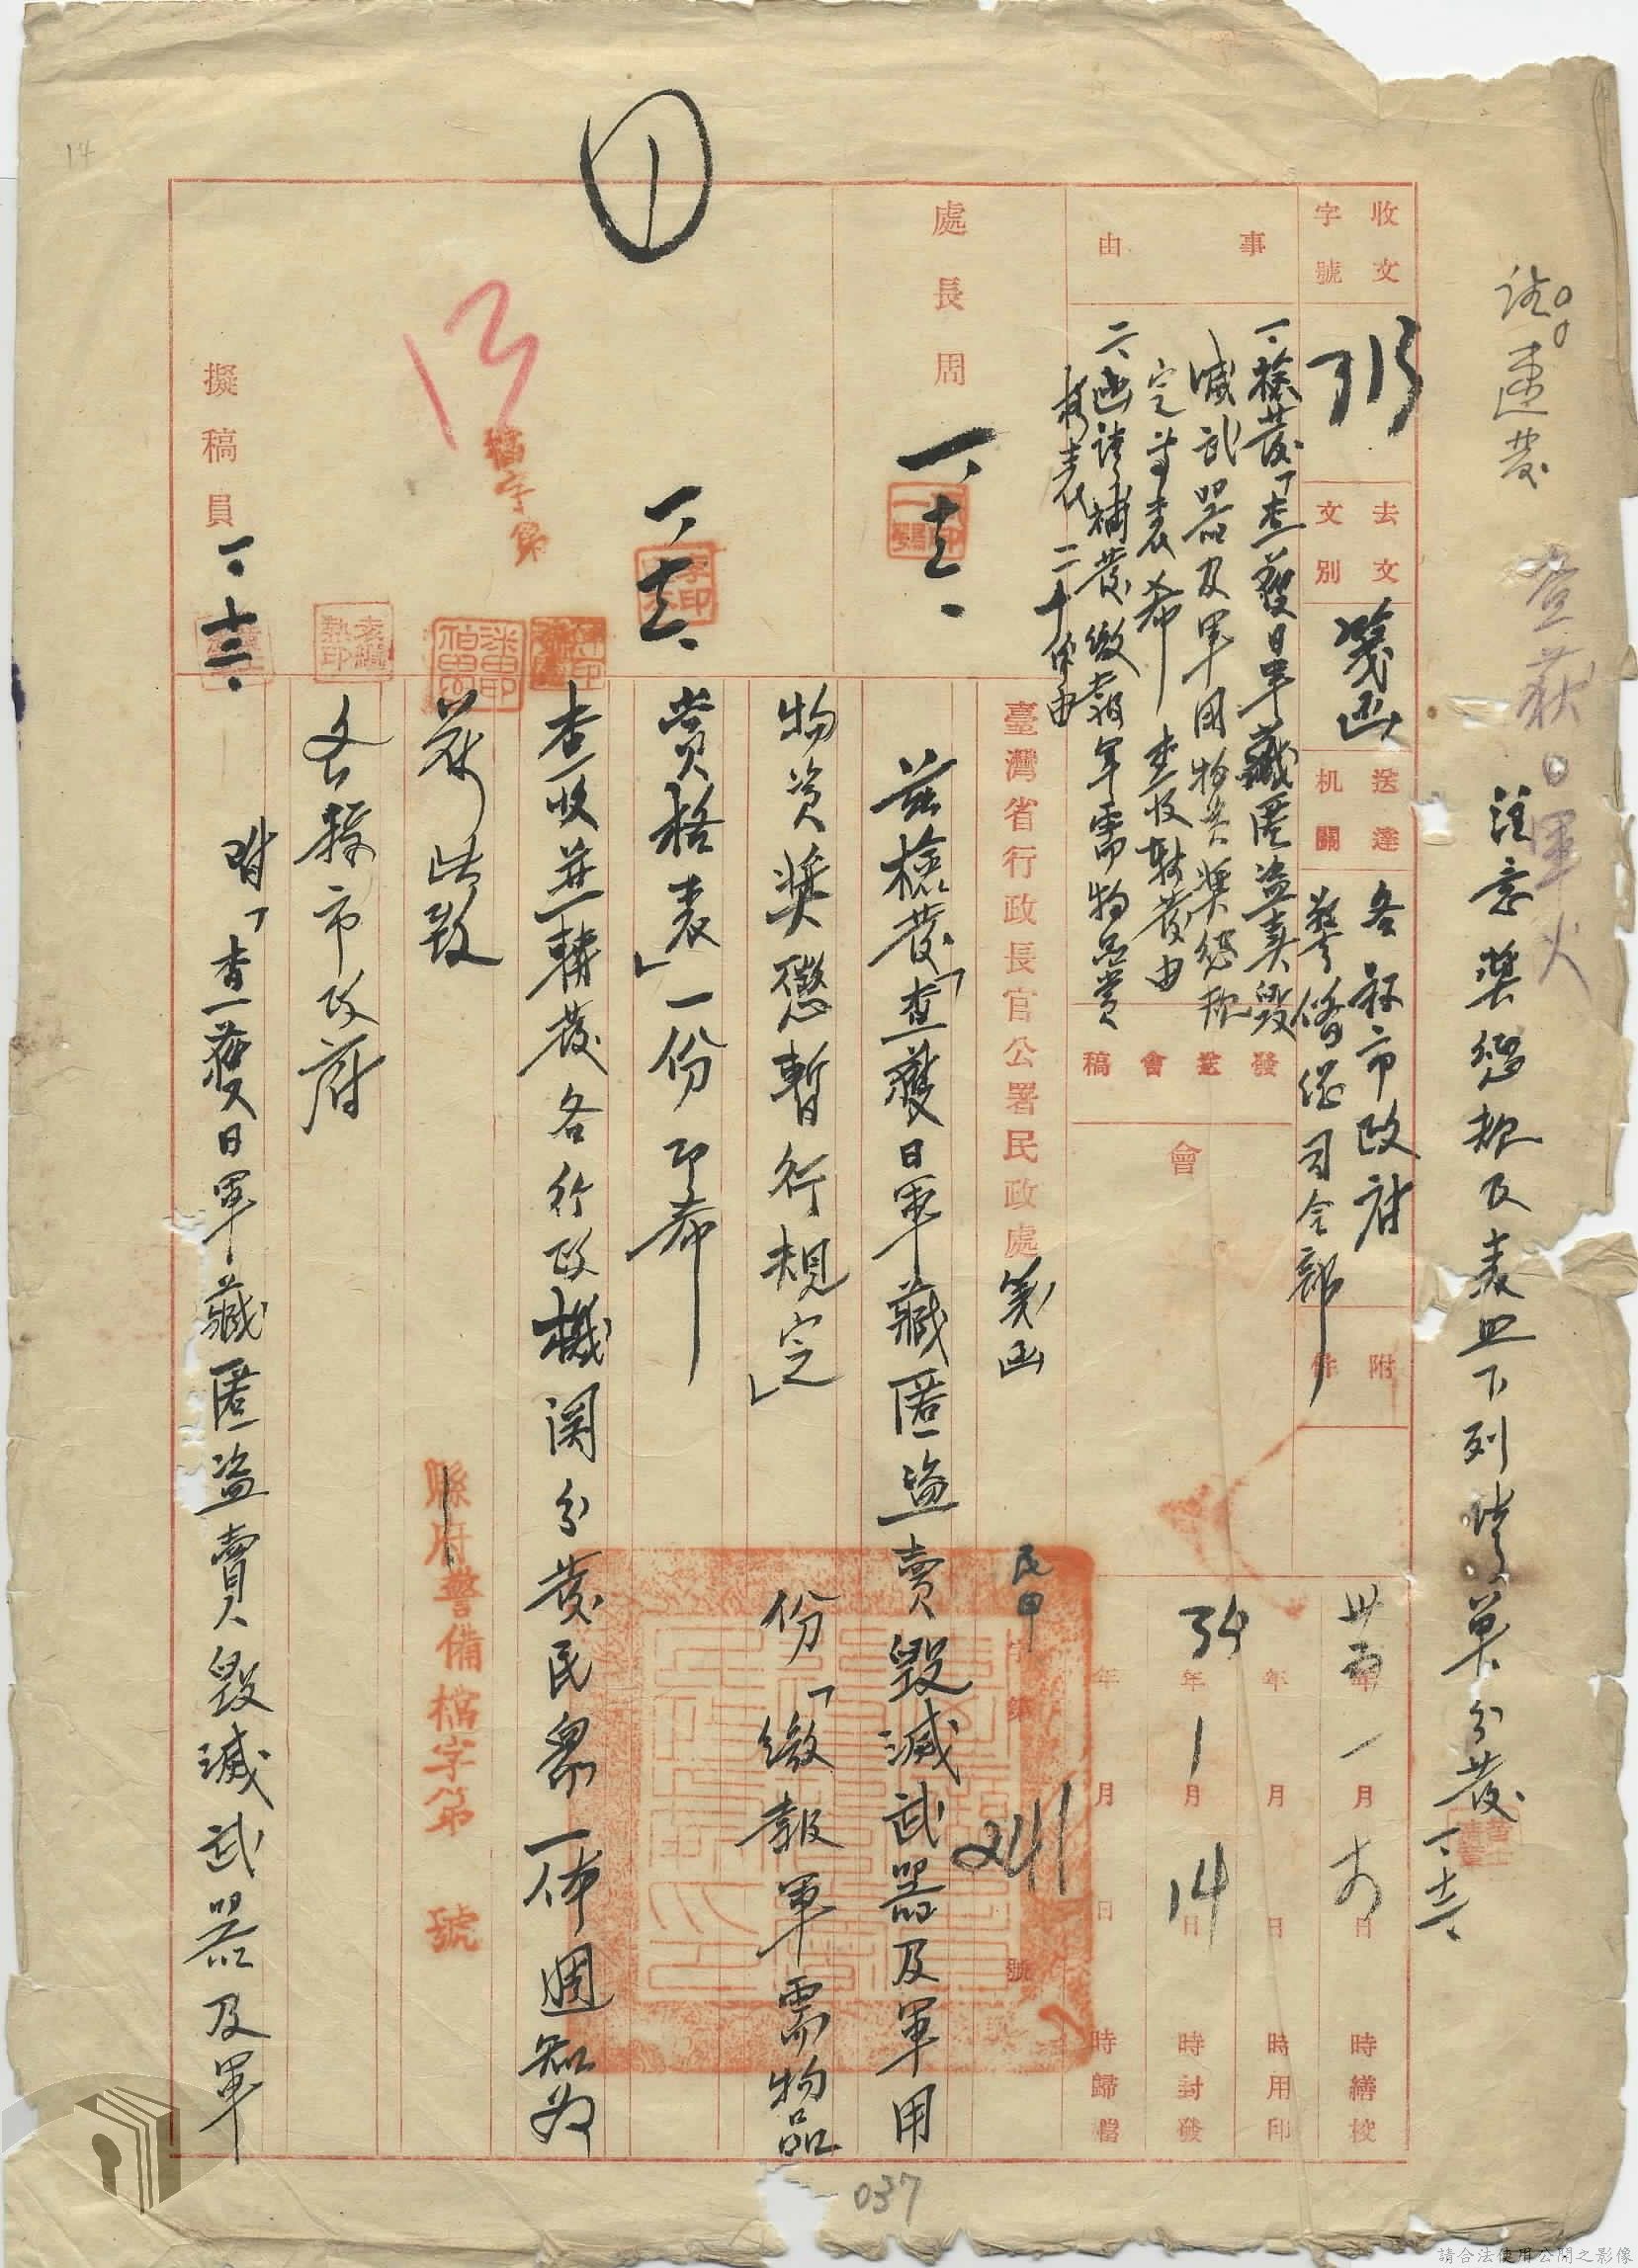 請速發
查獲日軍火
注意獎懲規及表照下列清單分發
一、十三、
收文字號
315
去文文別
箋函
送達机關
各縣市政府
警備總司令部
附件
事由
一、檢發「查獲日軍藏匿盜賣毀
滅武器及軍用物資獎懲規
定」等表希查收轉發由
二、函請補發繳報軍需物品賞
格表二十份由
發送會會稿
會
卅五年一月 日 時繕校
年月日時用印
34年1月14日時封發
年月日時歸檔
處長周
一、十三、
臺灣省行政長官公署民政處箋函
民甲字第211號
茲檢發「查獲日軍藏匿盜賣毀滅武器及軍用
物資獎懲暫行規定」 份「繳報軍需物品
賞格表」一份即希
查收並轉發各行政機関分發民眾一体週知為
荷此致
各縣市政府
附「查獲日軍藏匿盜賣毀滅武器及軍
一、十三、
擬稿員
一、十三、
稿字第
縣府警備檔字第 號
1
13
14
037
請合法使用公開之影像